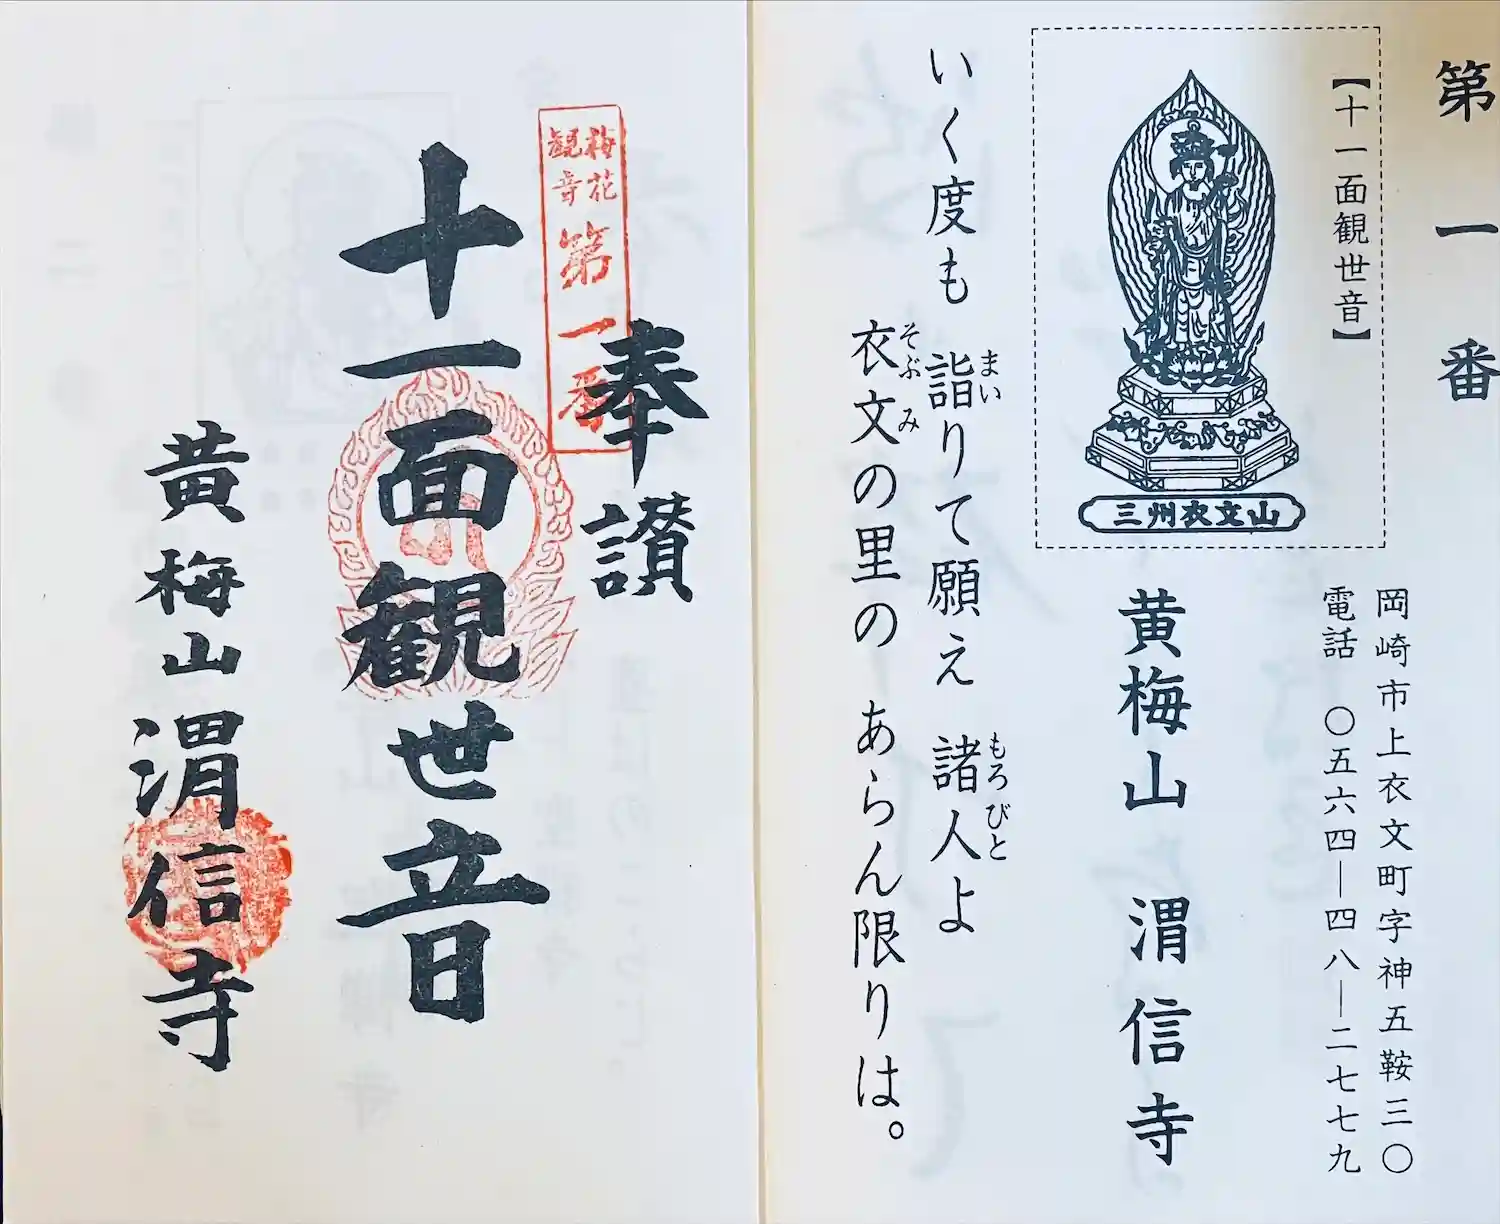 第一番
【十一面観世音】
三州衣文山
岡崎市上衣文町字神五鞍三〇
電話 〇五六四―四八―二七七九
黄梅山 渭信寺
いく度も 詣りて願え 諸人よ
まい
もろびと
衣文の里の あらん限りは。
そぶみ
奉讃
梅花
観音
第一番
十一面観世音
黄梅山渭信寺